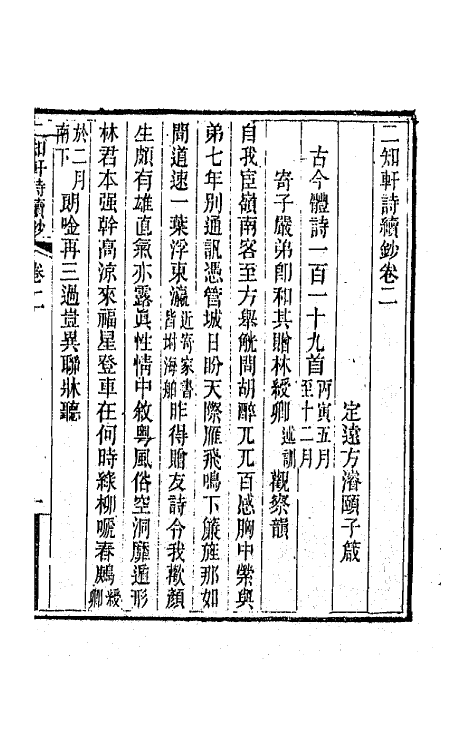 二知軒詩續鈔卷二
定遠方濬頤子箴
古今體詩一百一十九首丙寅五月至十二月
寄子嚴弟即和其贈林綬卿述訓觀察韻
自我宦嶺南客至方舉觥問胡醉兀兀百感胸中縈與
弟七年別通訊憑管城日盼天際雁飛鳴下簾旌那如
間道速一葉浮東瀛近寄家書皆坿海舶昨得贈友詩令我歡顏
生頗有雄直氣亦露眞性情中敘粵風俗空洞靡遁形
林君本强幹高涼來福星登車在何時綠柳嚦春鶊綬卿
於二月南下朗唫再三過豈異聯牀聽
二知軒詩續鈔 卷二 一